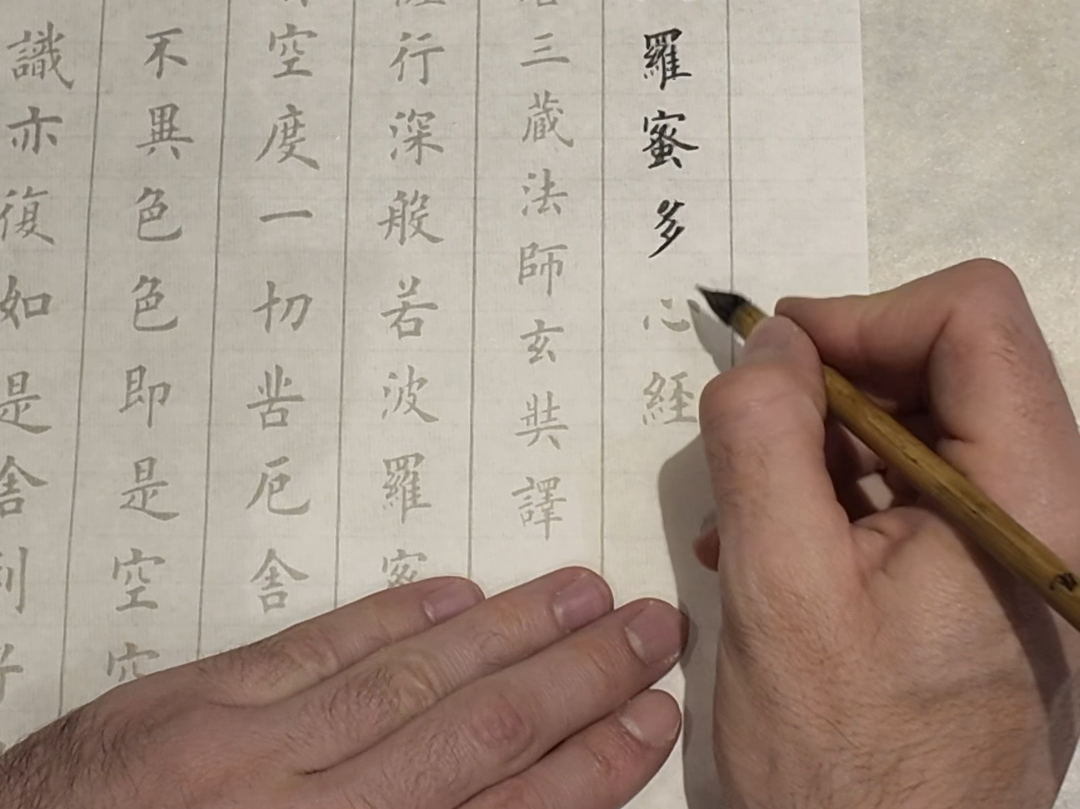 羅蜜多心経
三蔵法師玄奘譯
行深般若波羅
空度一切苦厄舎
不異色色即是空空
識亦復如是舎利子